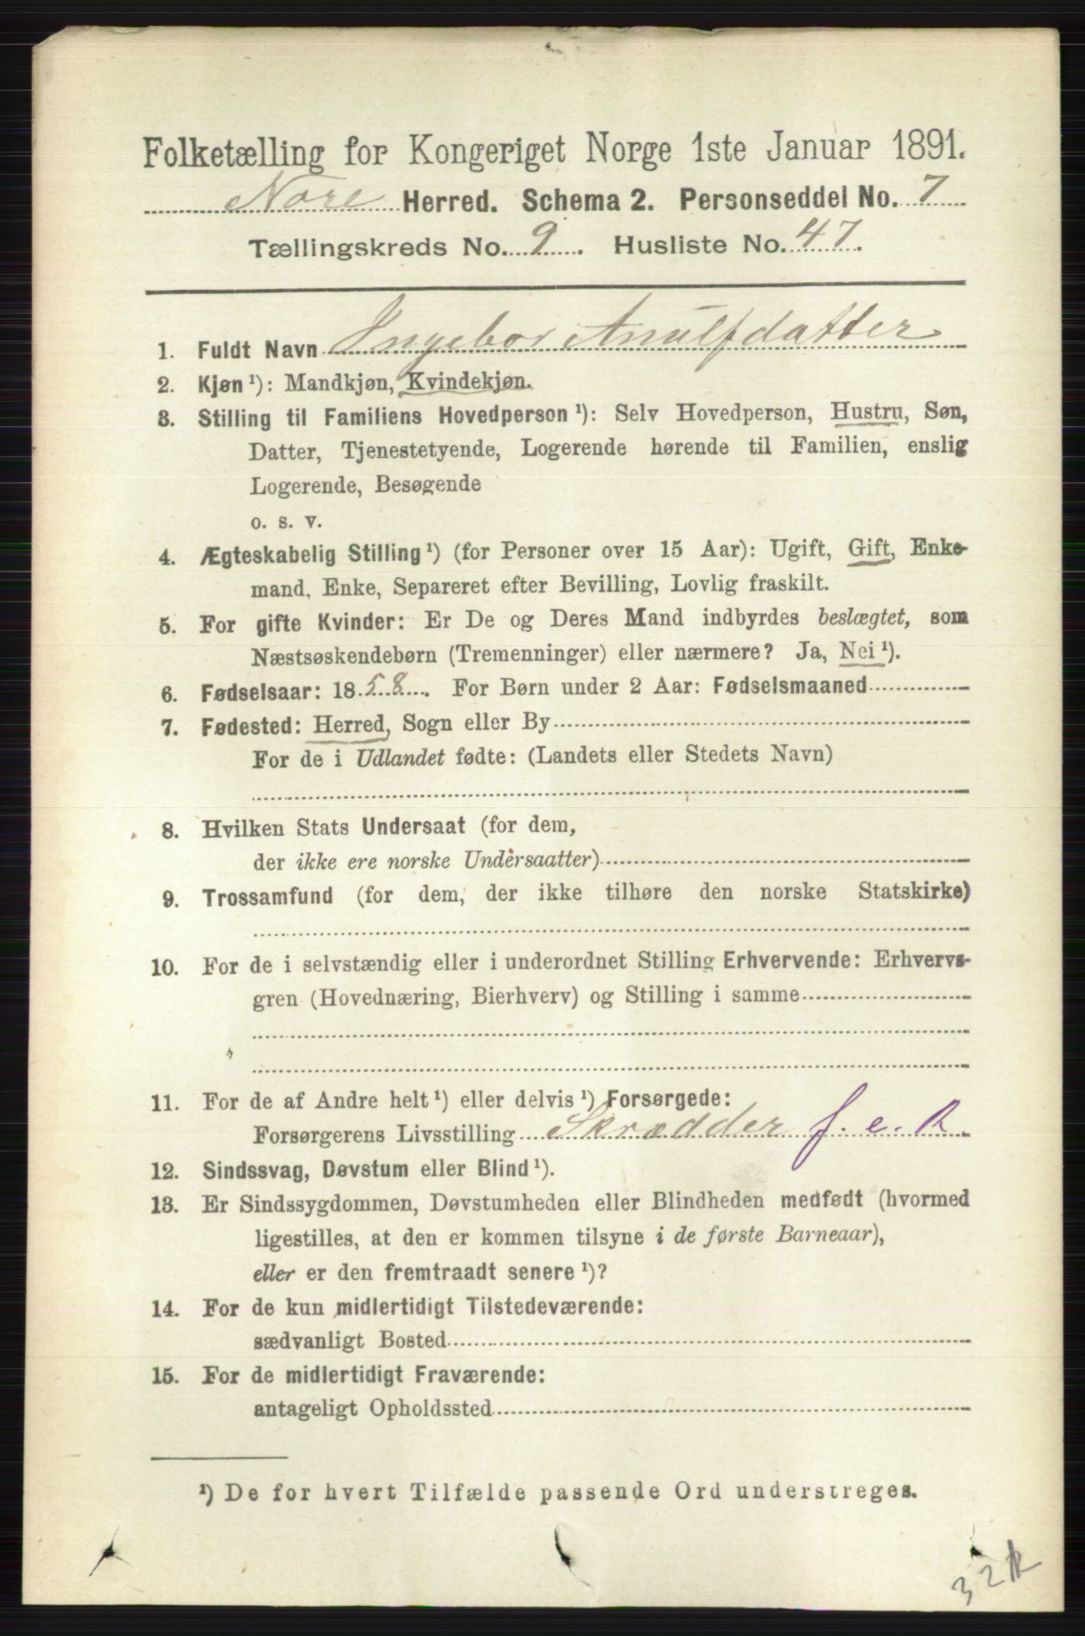 Folketælling for Kongeriget Norge 1ste Januar 1891.
Nore Herred. Schema 2. Personseddel No. 7
Tællingskreds No. 9. Husliste No. 47.
1. Fuldt Navn Ingebor Anulfdatter
2. Kjøn ¹): Mandkjøn, Kvindekjøn.
3. Stilling til Familiens Hovedperson ¹): Selv Hovedperson, Hustru, Søn,
Datter, Tjenestetyende, Logerende hørende til Familien, enslig
Logerende, Besøgende
o. s. v.
4. Ægteskabelig Stilling ¹) (for Personer over 15 Aar): Ugift, Gift, Enke-
mand, Enke, Separeret efter Bevilling, Lovlig fraskilt.
5. For gifte Kvinder: Er De og Deres Mand indbyrdes beslægtet, som
Næstsøskendebørn (Tremenninger) eller nærmere? Ja, Nei ¹).
6. Fødselsaar: 1858. For Børn under 2 Aar: Fødselsmaaned
7. Fødested: Herred, Sogn eller By
For de i Udlandet fødte: (Landets eller Stedets Navn)
8. Hvilken Stats Undersaat (for dem,
der ikke ere norske Undersaatter)
9. Trossamfund (for dem, der ikke tilhøre den norske Statskirke)
10. For de i selvstændig eller i underordnet Stilling Erhvervende: Erhvervs-
gren (Hovednæring, Bierhverv) og Stilling i samme
11. For de af Andre helt ¹) eller delvis ¹) Forsørgede:
Forsørgerens Livsstilling Skrædder f. e. R.
12. Sindssvag, Døvstum eller Blind ¹).
13. Er Sindssygdommen, Døvstumheden eller Blindheden medfødt (hvormed
ligestilles, at den er kommen tilsyne i de første Barneaar),
eller er den fremtraadt senere ¹)?
14. For de kun midlertidigt Tilstedeværende:
sædvanligt Bosted
15. For de midlertidigt Fraværende:
antageligt Opholdssted
¹) De for hvert Tilfælde passende Ord understreges.
32